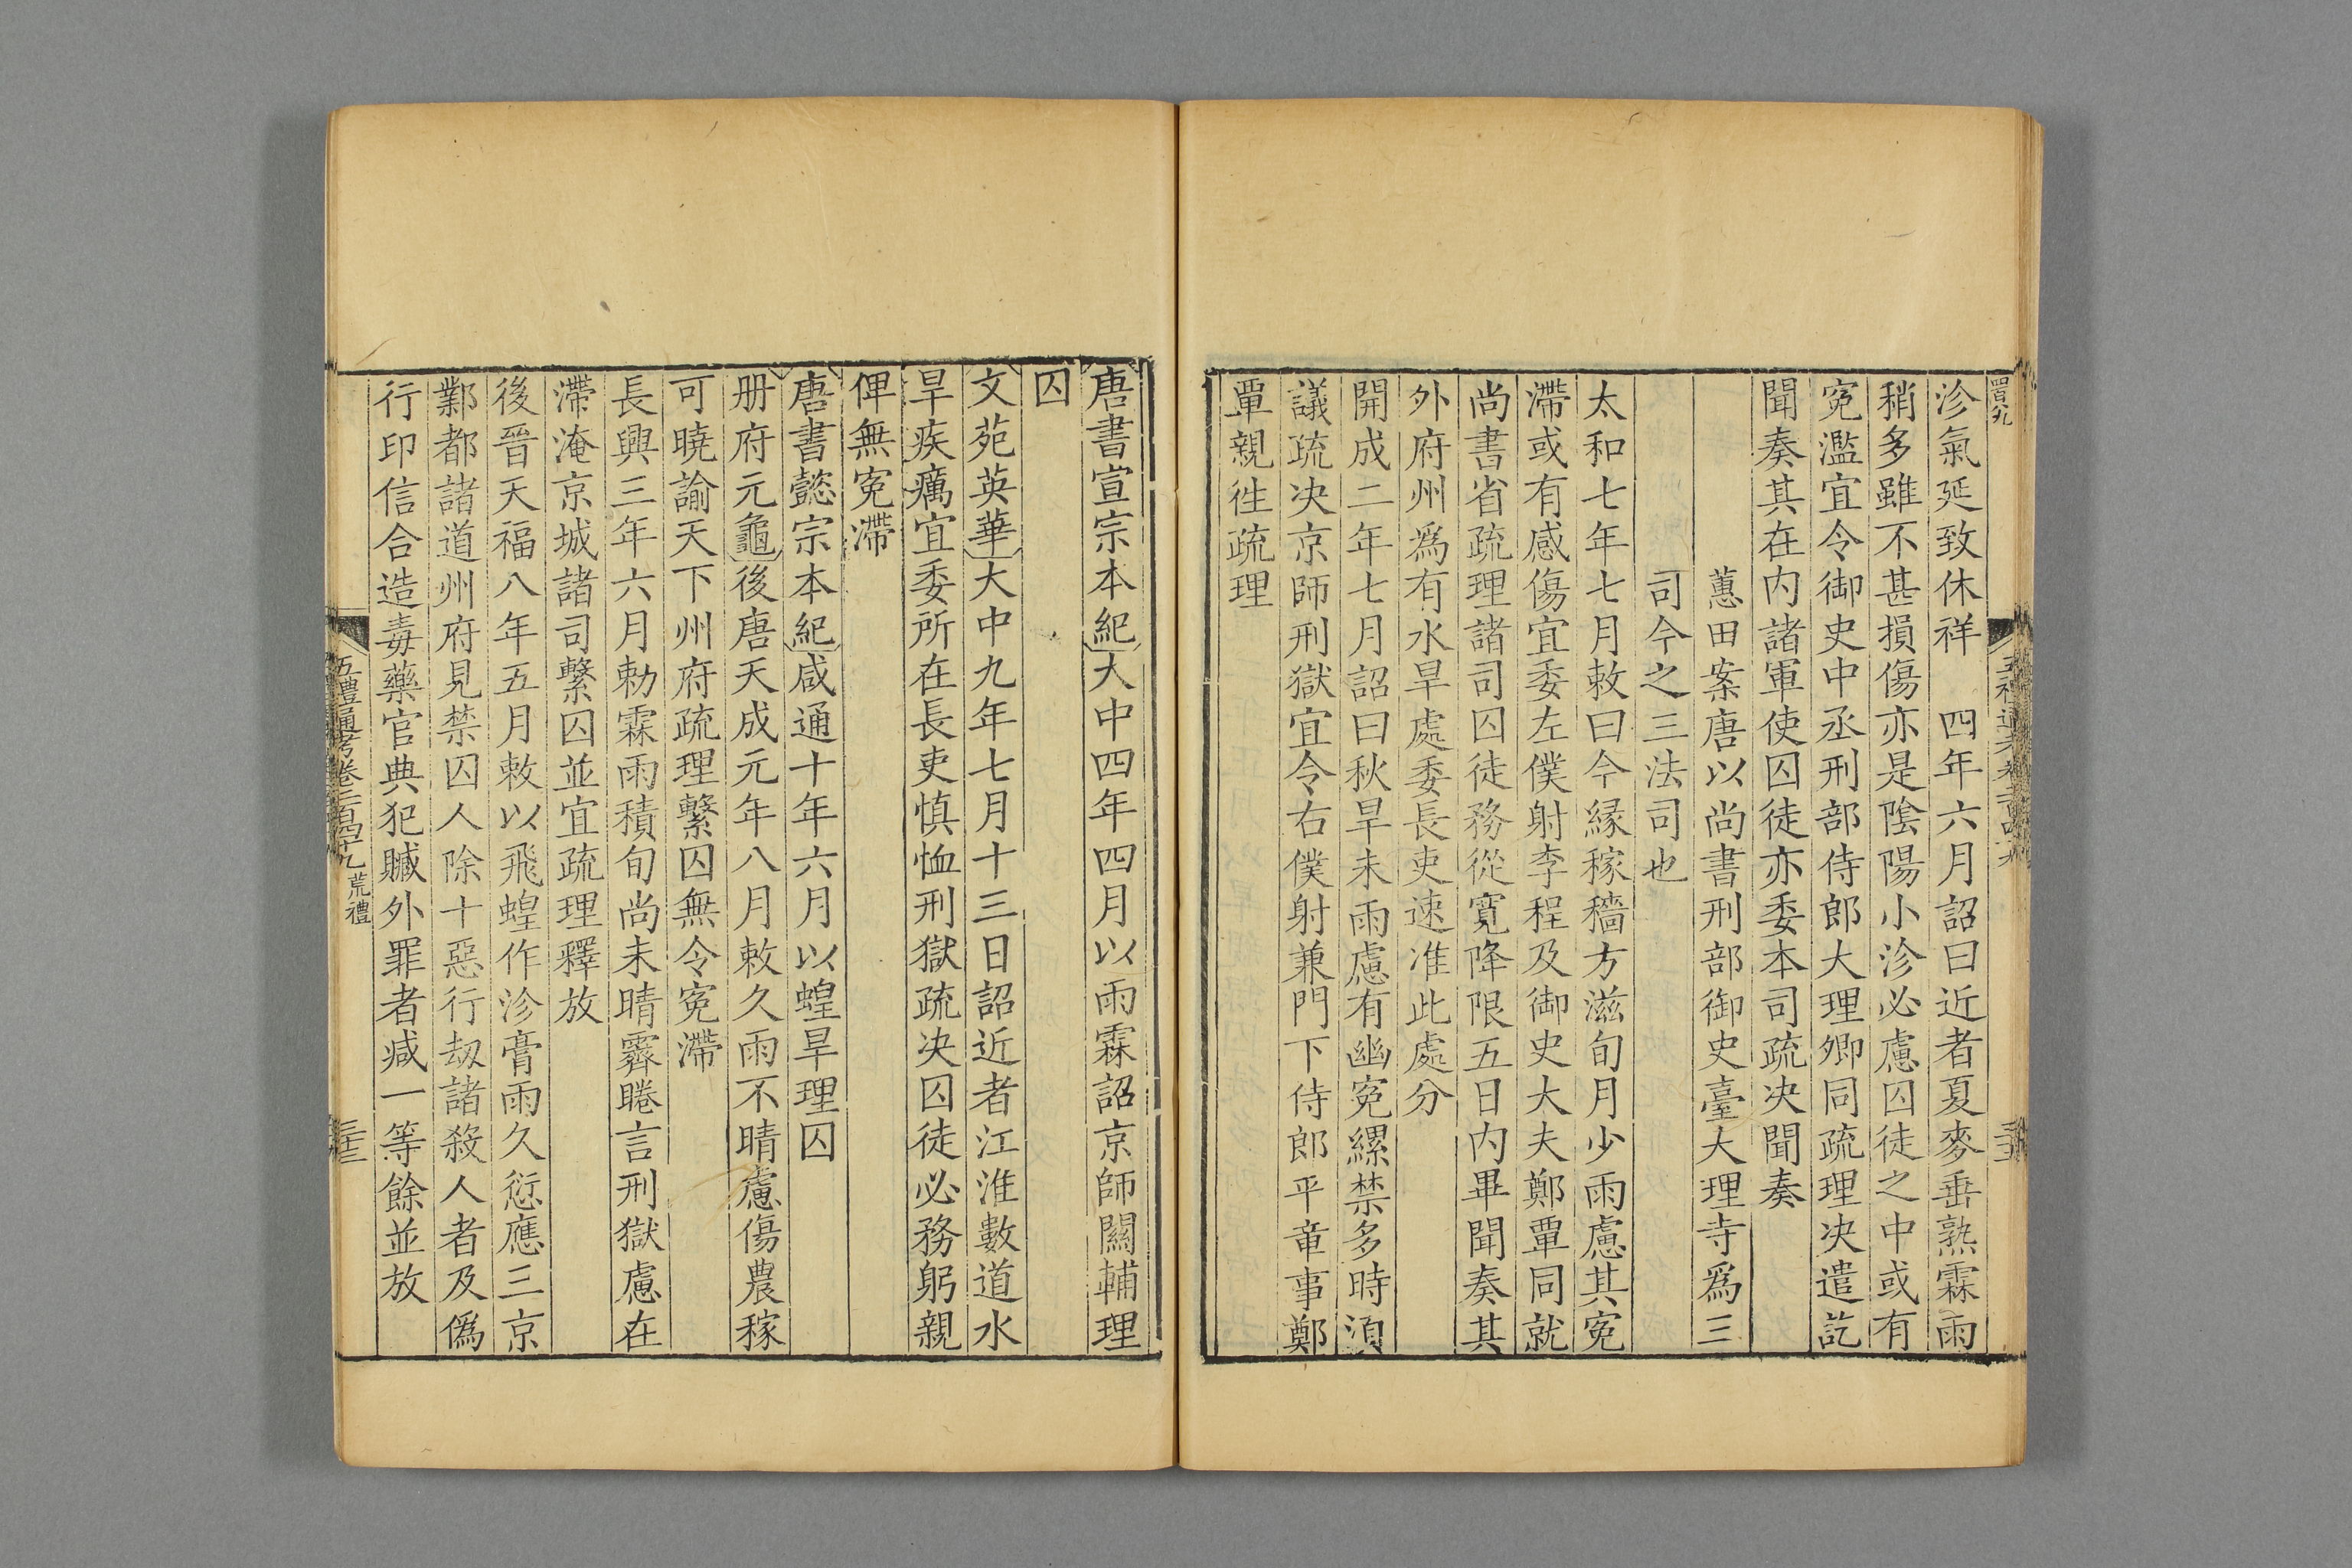 沴氣延致休祥　四年六月詔曰近者夏麥垂熟霖雨
稍多雖不甚損傷亦是陰陽小沴必慮囚徒之中或有
寃濫宜令御史中丞刑部侍郎大理卿同疏理决遣訖
聞奏其在内諸軍使囚徒亦委本司疏决聞奏
蕙田案唐以尚書刑部御史臺大理寺爲三
司今之三法司也
太和七年七月敕曰今緣稼穡方滋旬月少雨慮其寃
滯或有感傷宜委左僕射李程及御史大夫鄭覃同就
尚書省疏理諸司囚徒務從寛降限五日内畢聞奏其
外府州爲有水旱處委長吏速准此處分
開成二年七月詔曰秋旱未雨慮有幽寃縲禁多時湏
議疏决京師刑獄宜令右僕射兼門下侍郎平章事鄭
覃親徃疏理
唐書宣宗本紀大中四年四月以雨霖詔京師關輔理
囚
文苑英華大中九年七月十三日詔近者江淮數道水
旱疾癘宜委所在長吏慎恤刑獄疏决囚徒必務躬親
俾無寃滯
唐書懿宗本紀咸通十年六月以蝗旱理囚
册府元龜後唐天成元年八月敕久雨不晴慮傷農稼
可曉諭天下州府疏理繫囚無令寃滯
長興三年六月勅霖雨積旬尚未晴霽睠言刑獄慮在
滯淹京城諸司繫囚並宜疏理釋放
後晉天福八年五月敕以飛蝗作沴膏雨久愆應三京
鄴都諸道州府見禁囚人除十惡行刼諸殺人者及僞
行印信合造毒藥官典犯贓外罪者减一等餘並放
五禮通考卷二百四十九 荒禮
三十三